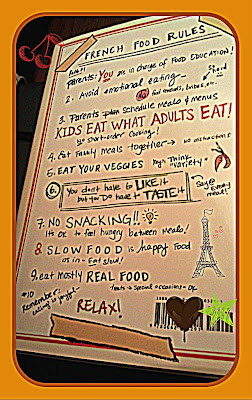 FRENCH FOOD RULES
Parents: You are in charge of FOOD EDUCATION!
2. Avoid emotional eating~
NO food rewards, bribes, etc.
3. Parents plan schedule meals & menus
KIDS EAT WHAT ADULTS EAT!
No short-order cooking!
4. Eat family meals together → no distractions
5. EAT YOUR VEGGIES Think "Variety"
6. You don't have to LIKE it
but you DO have to TASTE it
Say @ every meal!
7. NO SNACKING!!
It's OK to feel hungry between meals!
8 SLOW FOOD is happy Food
as in - Eat slow!
9. eat mostly REAL FOOD
treats → special occasions - OK
#10
Remember:
eating is joyful~
RELAX!